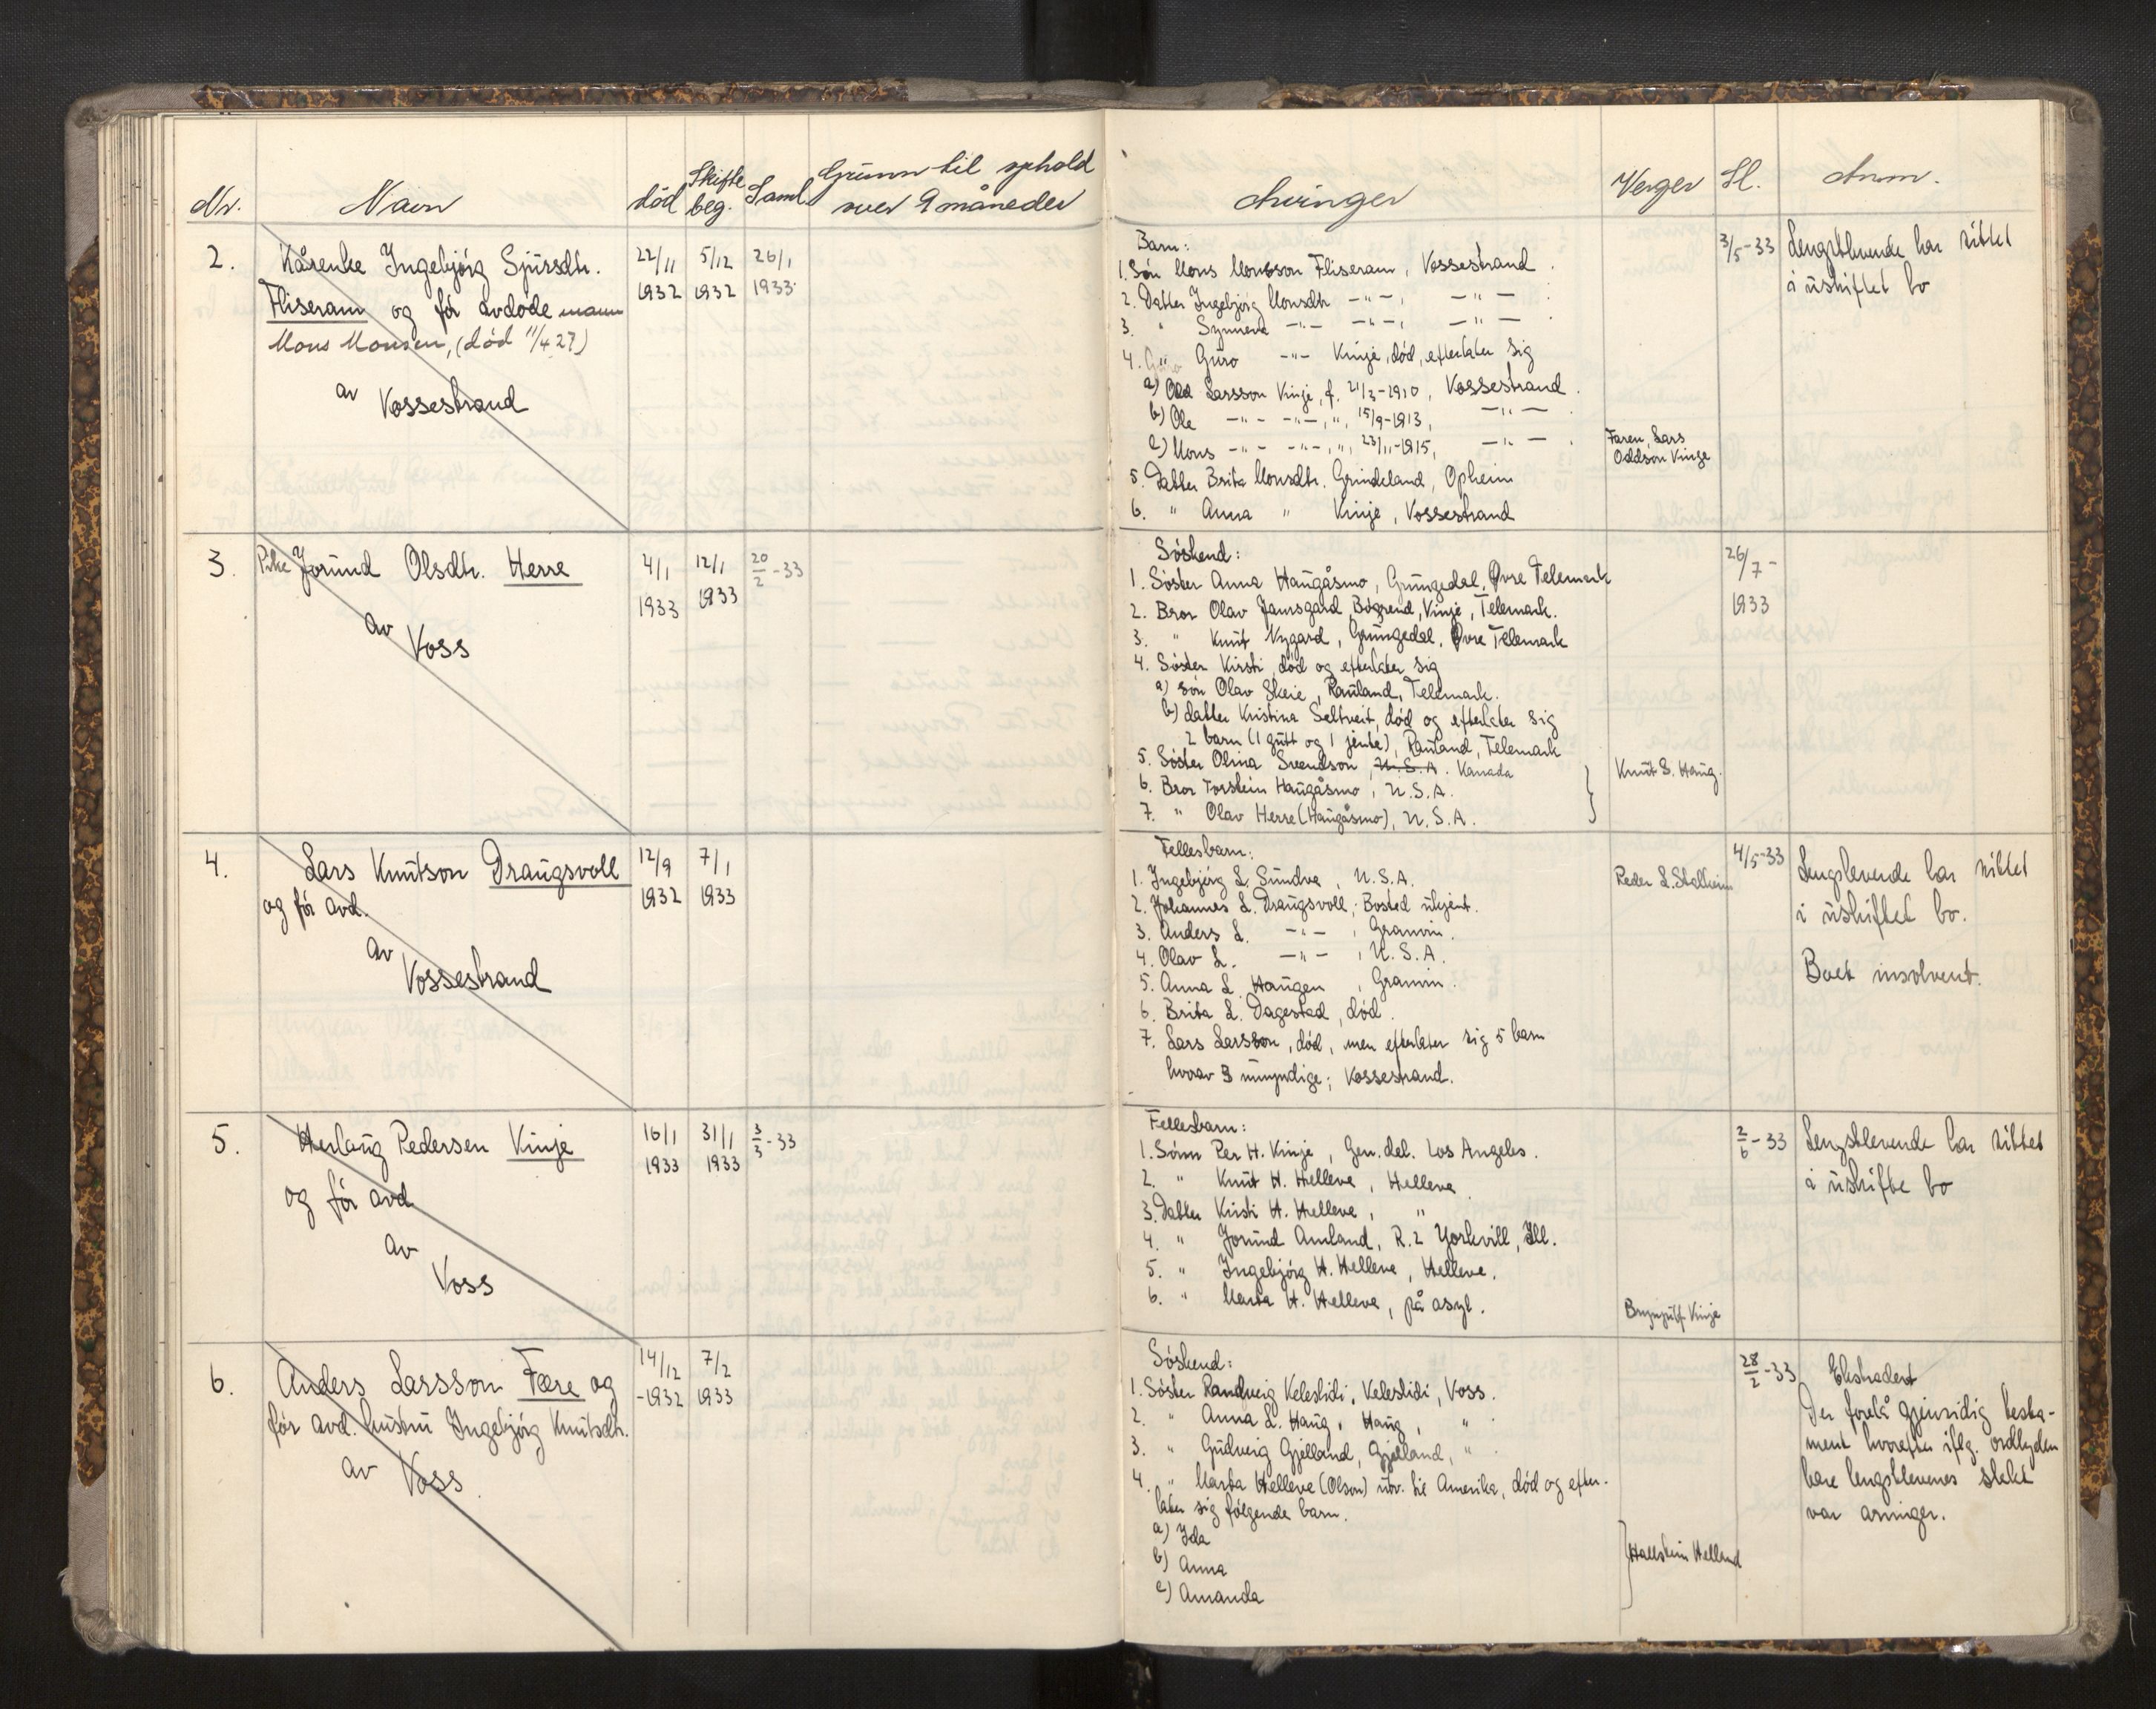 Nr. Navn død Skifte beg. Saml. Grunn til ophold over 9 måneder Arvinger Verger Sl. Anm.
2. Kårenke Ingebjørg Sjursdtr.
Fliseram og før avdøde mann
Mons Monsen, (død 11/4 27)
av Vossestrand
22/11 1932
5/12 1932
26/1 1933
Barn:
1. Søn Mons Monsson Fliseram, Vossestrand.
2. Datter Ingebjørg Monsdtr. -"- , -"-
3. " Synneva -"- -"- , -"-
4. " Guro -"- Vinje, død, efterlater sig
a) Odd Larsson Vinje, f. 21/3-1910, Vossestrand.
b) Ole -"- -"-, ", 15/9-1913, -"-
c) Mons -"- -"-, ", 23/11-1915, -"-
5. Datter Brita Monsdtr. Grindeland, Opheim
6. " Anna " Vinje, Vossestrand
Faren, Lars
Oddson Vinje
3/5-33
Lengstlevende har sittet
i uskiftet bo
3. Pike Jorund Olsdtr. Herre
av Voss
4/1 1933
12/1 1933
20/2-33
Søskend:
1. Søster Anna Haugåsmo, Grungedal, Øvre Telemark
2. Bror Olav Jamsgard Bøgrend, Vinje, Telemark.
3. " Knut Nygard, Grungedal, Øvre Telemark
4. Søster Kirsti, død og efterlater sig
a) søn Olav Skeie, Rauland, Telemark.
b) datter Kristina Seltveit, død og efterlater sig
2 barn (1 gutt og 1 jente), Rauland, Telemark
5. Søster Olina Svendson, U.S.A. Kanada
6. Bror Torstein Haugåsmo, U.S.A.
7. " Olav Herre (Haugåsmo), U.S.A.
Knut S. Haug.
26/7-
1933
4. Lars Knutson Draugsvoll
og før avd.
av Vossestrand
12/9 1932
7/1 1933
Fellesbarn:
1. Ingebjørg L. Sundve, U.S.A.
2. Johannes L. Draugsvoll; Bosted ukjent.
3. Anders L. -"- , Granvin.
4. Olav L. -"- , U.S.A.
5. Anna L. Haugen, Granvin.
6. Brita L. Dagestad, død.
7. Lars Larsson, død, men efterlater sig 5 barn
hvorav 3 umyndige; Vossestrand.
Peder L. Stalheim
4/5-33
Lengslevende har sittet
i uskiftet bo.
Boet insolvent.
5. Herlaug Pedersen Vinje
og før avd
av
Voss
16/1 1933
31/1 1933
3/3-33
Fellesbarn:
1. Sønn Per H. Vinje, Gen. del. Los Angeles.
2. " Knut H. Helleve, Helleve
3. Datter Kirsti H. Helleve, "
4. " Jorund Amland, R.2 Yorkvill, Ill.
5. " Ingebjørg H. Helleve, Helleve.
6. " Marta H. Helleve, på asyl.
Brynjulf Vinje
2/6-33
Lengstlevende har sittet
i uskifte bo
6. Anders Larsson Fære og
før avd. hustru Ingebjørg Knutsdtr.
av Voss.
14/12 -1932
7/2 1933
Søskend:
1. Søster Randveig Velestidi, Velestidi, Voss.
2. " Anna L. Haug, Haug, "
3. " Gudveig Gjelland, Gjelland, "
4. " Marta Helleve (Olson) utv. til Amerika, død og efter-
later sig følgende barn.
a) Ida
b) Anna
c) Amanda
Hallstein Helland
28/2-33
Ekstradert
Der forelå gjensidig testa-
ment hvorefter iflg. ordlyden
bare lengstlevenes slekt
var arvinger.